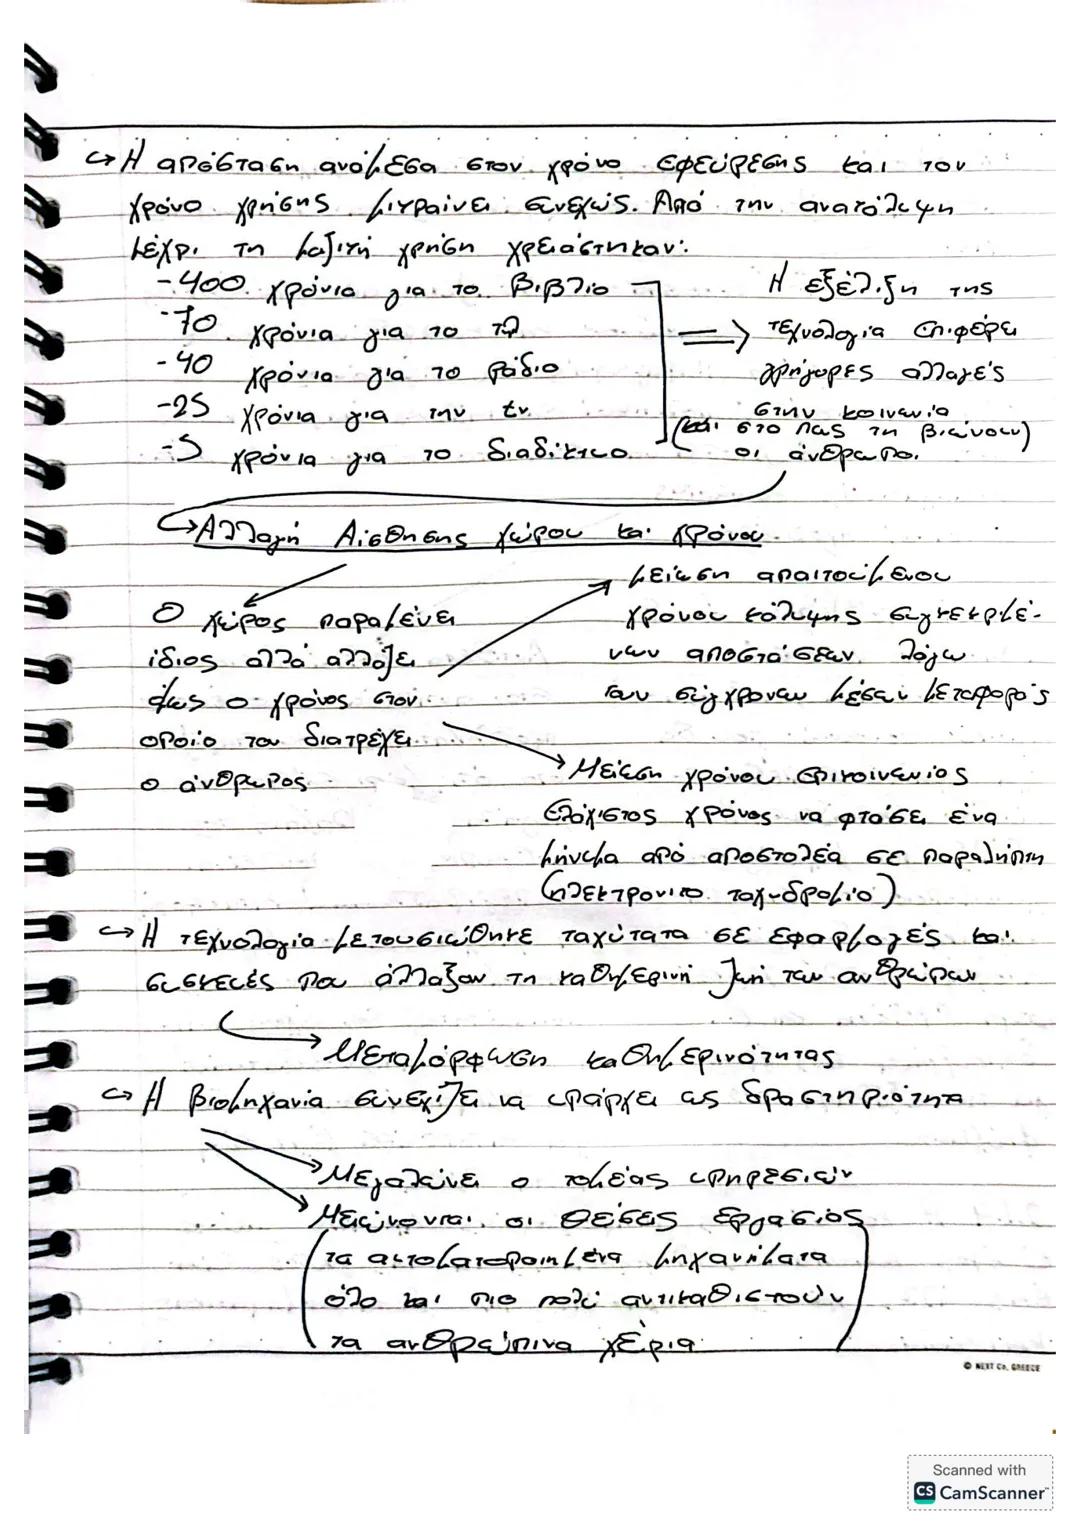 ↪ Η απόσταση ανάμεσα στον χρόνο εφεύρεσης και τον
χρόνο χρήσης μικραίνει συνεχώς. Από την ανακάλυψη
μέχρι τη μαζική χρήση χρειάστηκαν:
-400 χρόνια για το βιβλίο
-70 χρόνια για το τηλ
-40 χρόνια για το ράδιο
-25 χρόνια για την tv
-5 χρόνια για το διαδίκτυο
⇒ Η εξέλιξη της
τεχνολογία επιφέρει
γρήγορες αλλαγές
στην κοινωνία
(και στο πως τη βιώνουν)
οι άνθρωποι
↪ Αλλαγή Αίσθησης χώρου και χρόνου
Ο χώρος παραμένει
ίδιος αλλά αλλάζει
όμως ο χρόνος στον
οποίο τον διατρέχει
ο άνθρωπος
μείωση απαιτούμενου
χρόνου κάλυψης συγκεκριμέ-
νων αποστάσεων λόγω
των σύγχρονων μέσων μεταφοράς
Μείωση χρόνου επικοινωνίας
ελάχιστος χρόνος να φτάσει ένα
μήνυμα από αποστολέα σε παραλήπτη
(ηλεκτρονικο ταχυδρομίο)
↪ Η τεχνολογία μετουσιώθηκε ταχύτατα σε εφαρμογές και
συσκευές που άλλαξαν τη καθημερινή ζωή των ανθρώπων
Μεταμόρφωση καθημερινότητας
↪ Η βιομηχανία συνεχίζει να υπάρχει ως δραστηριότητα
Μεγαλώνει ο τομέας υπηρεσιών
Μειώνονται οι θέσεις εργασίας
(τα αυτοματοποιημένα μηχανήματα
όλο και πιο πολύ αντικαθιστούν
τα ανθρώπινα χέρια)
© NEXT Co. GREECE
Scanned with
CS CamScanner